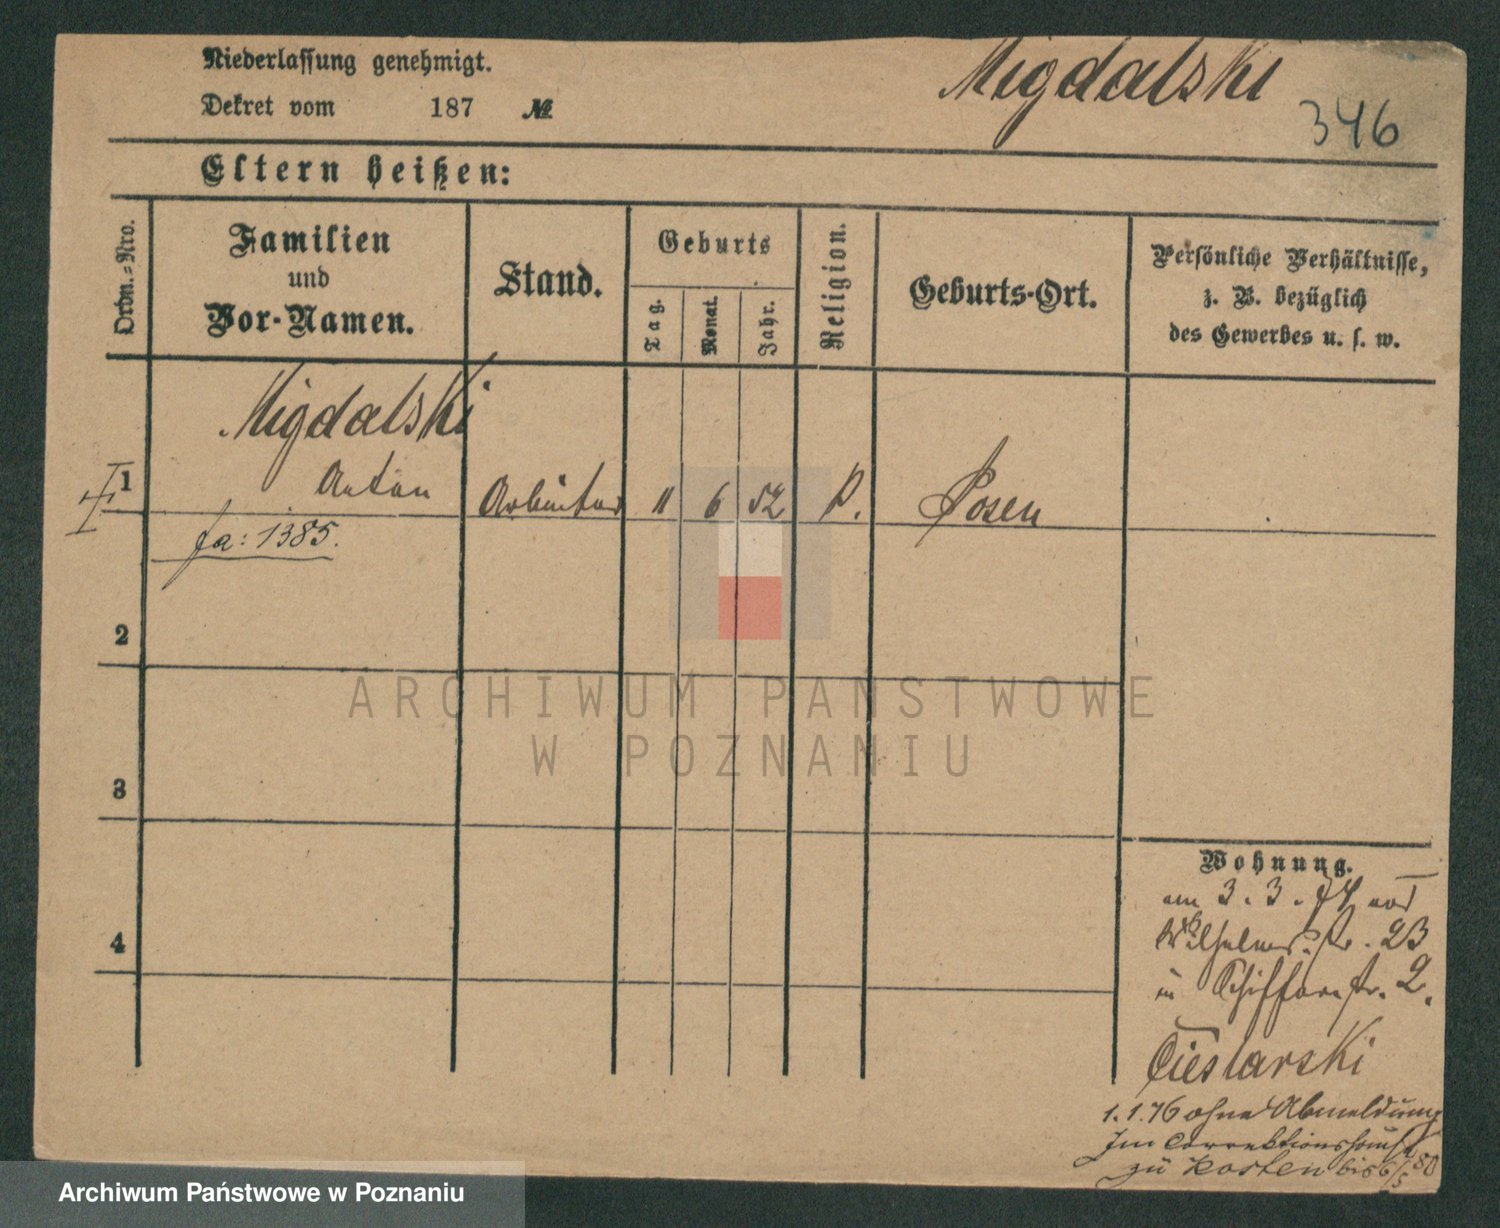 Niederlassung genehmigt.
Dekret vom 187 №
Migdalski
346
Eltern heißen:
Ordn.=Nro.
Familien
und
Vor-Namen.
Stand.
Geburts
Tag.
Monat.
Jahr.
Religion.
Geburts-Ort.
Persönliche Verhältnisse,
z. B. bezüglich
des Gewerbes u. s. w.
Migdalski
1 Anton Arbeiter 11 6 52 k. Posen
fa: 1385.
2
3
4
Wohnung.
am 3. 3. 74 von
Wilhelmsstr. 23
in Schifferstr. 2.
Cieslarski
1.1.76 ohne Abmeldung
Im Correktionshause
zu Kosten bis 6/5 80
ARCHIWUM PAŃSTWOWE
W POZNANIU
Archiwum Państwowe w Poznaniu